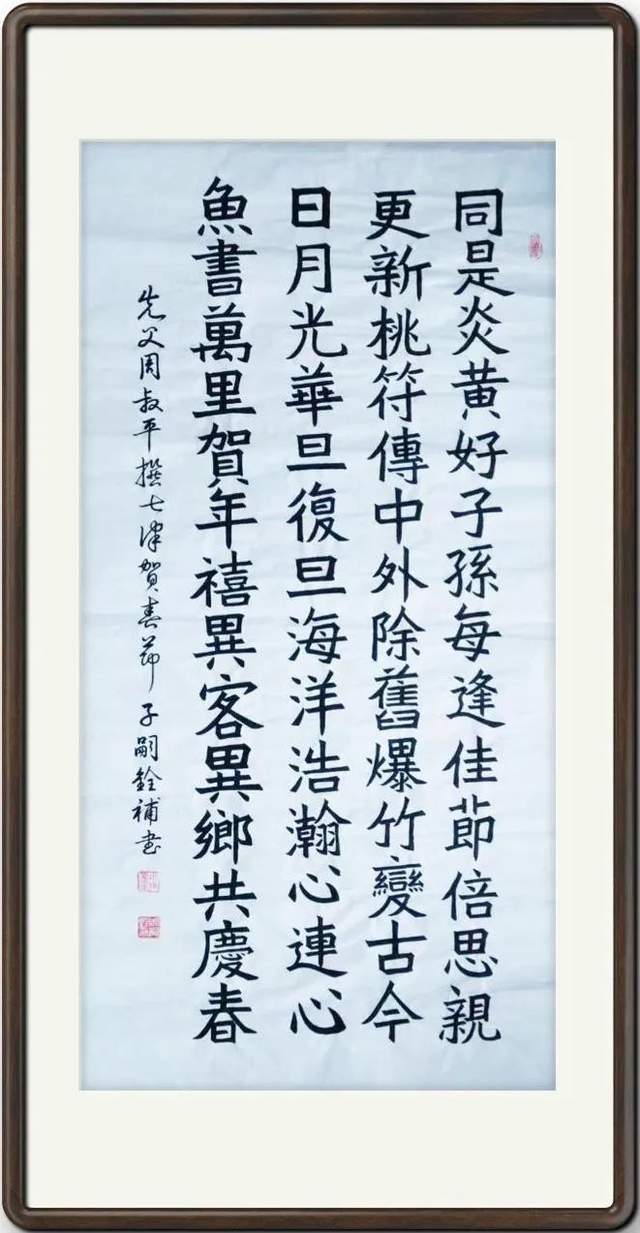 同是炎黃好子孫每逢佳節倍思親
更新桃符傳中外除舊爆竹變古今
日月光華旦復旦海洋浩瀚心連心
魚書萬里賀年禧異客異鄉共慶春
先父周叔平撰七律賀春節 子嗣銓補書